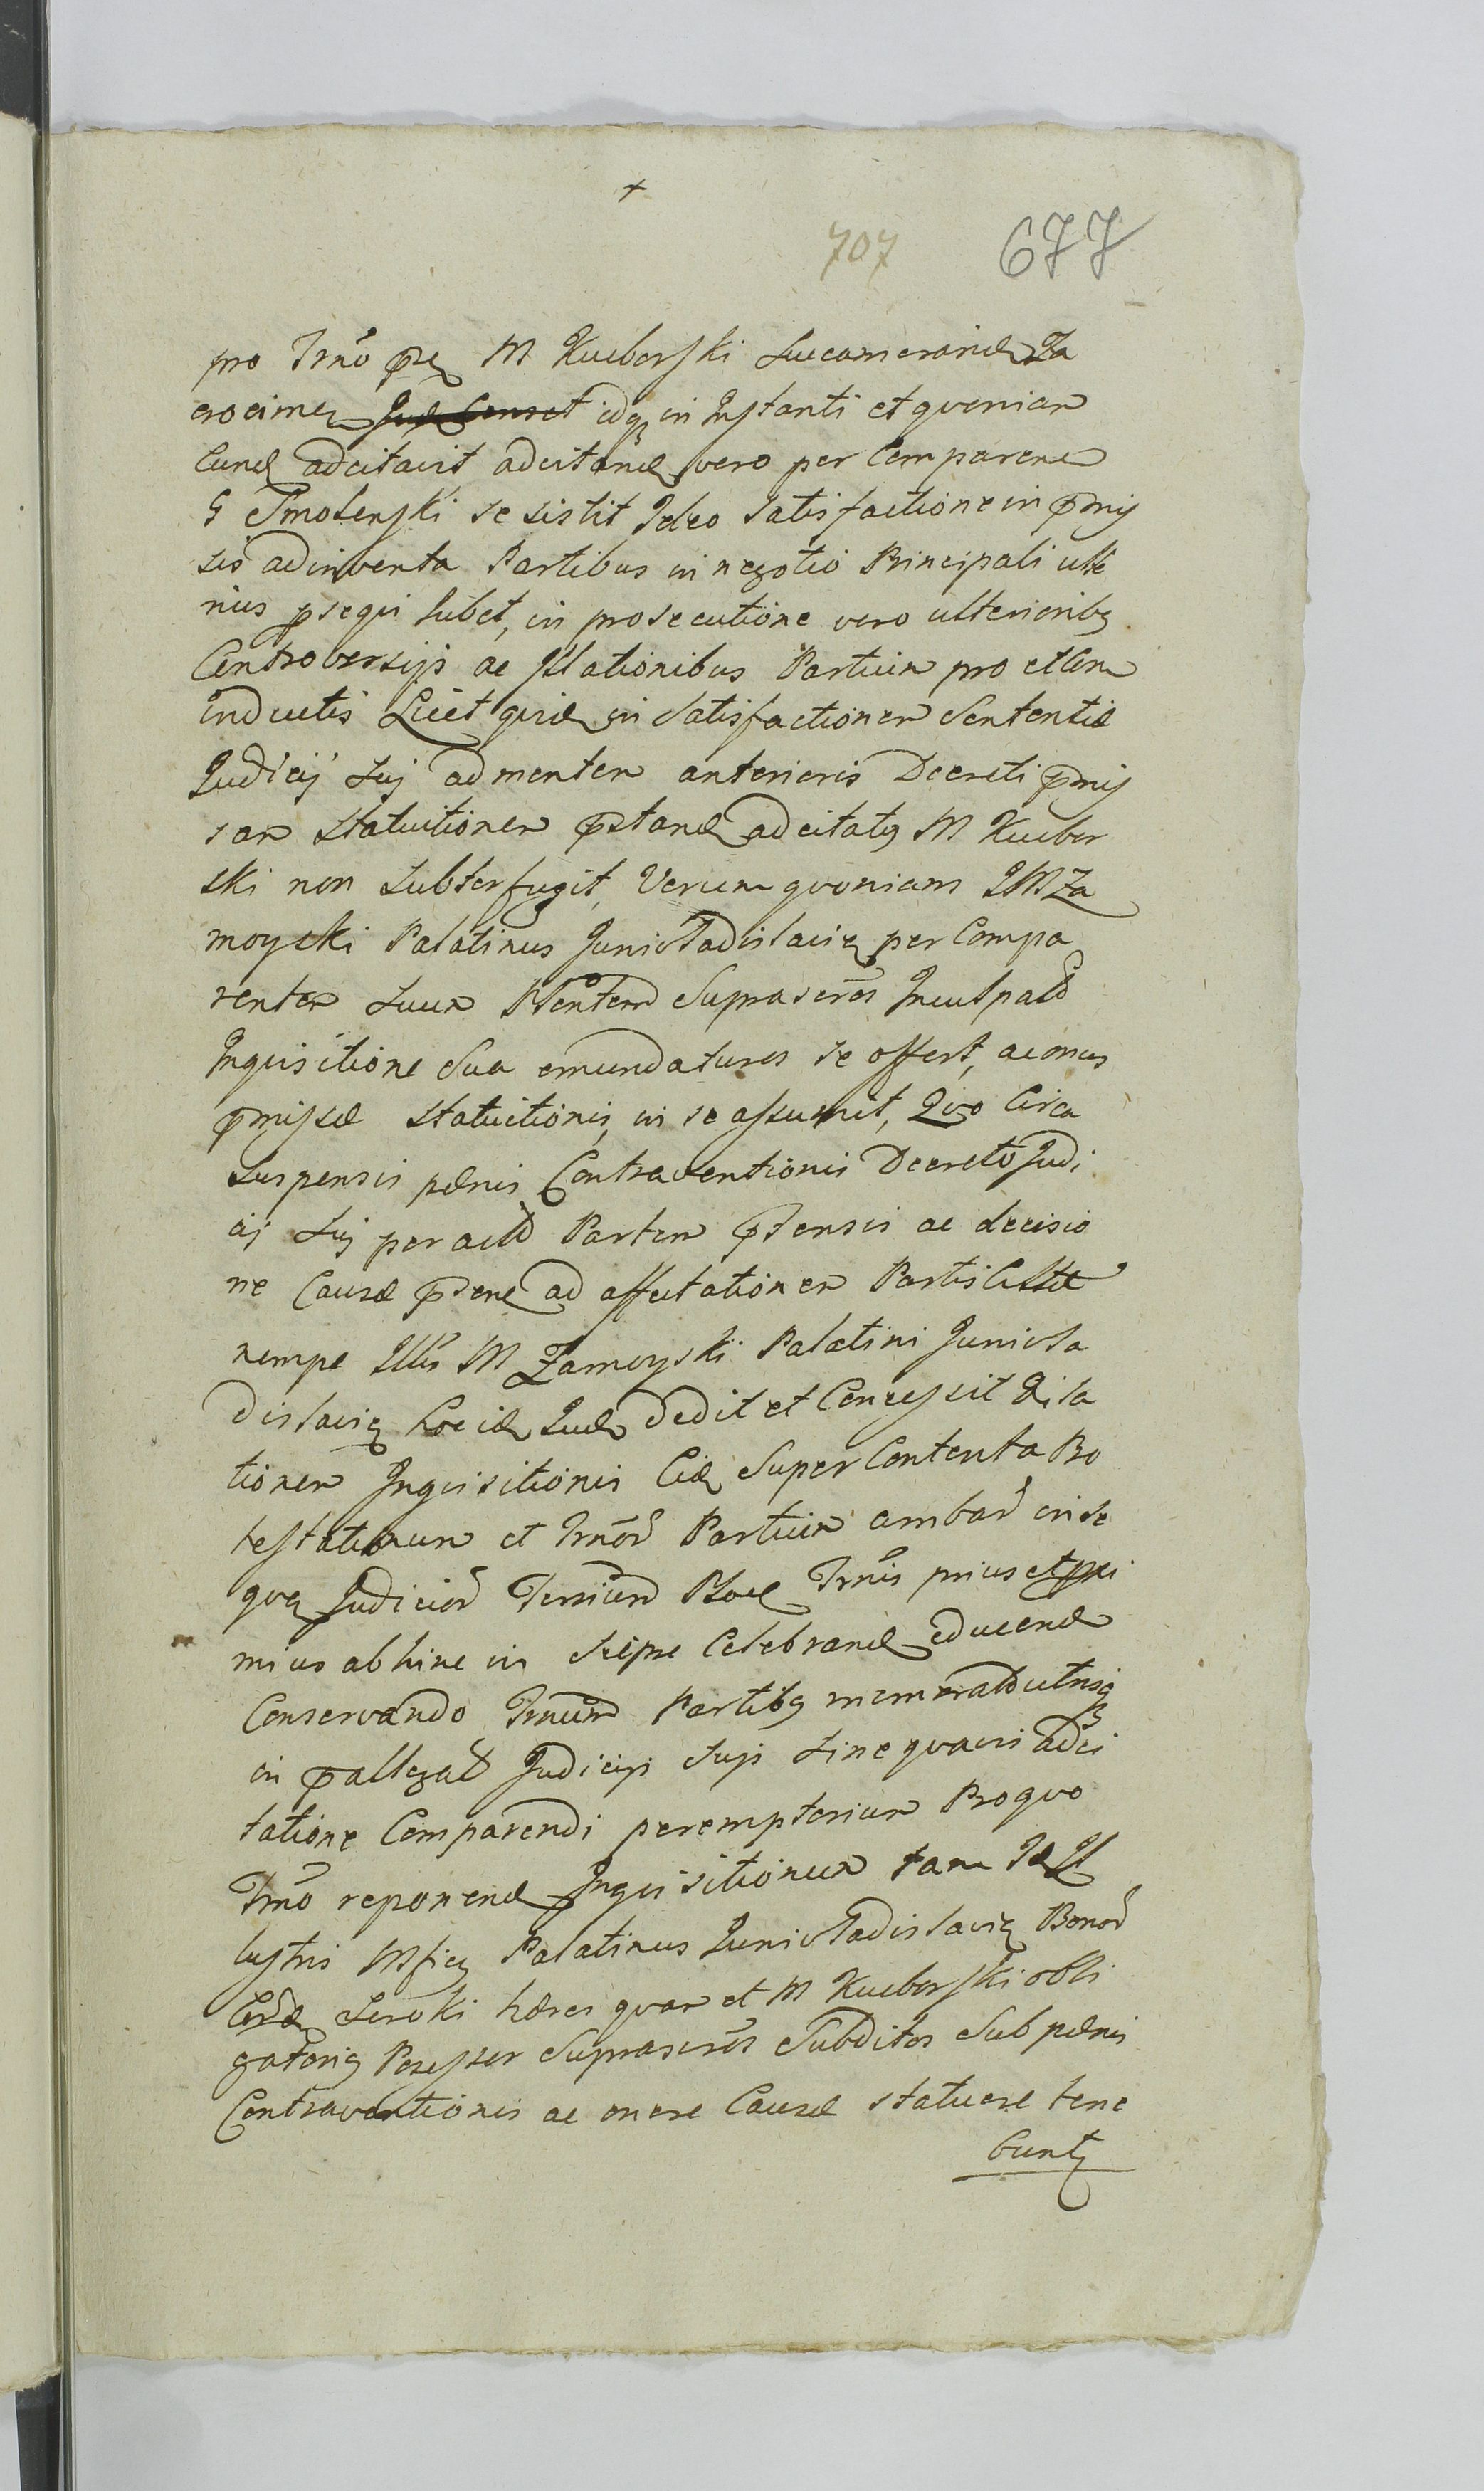 +
707 677
pro Trño M Kuczborski Succamerariꝰ Za
idqꝫ in Instanti et qvoniam
adcitavit adcitand vero per Comparen
G Smolenski se sistit Ideo satisfactione in p̃mis
sis adinventa Partibus in negotio Principali ulte
rius p̃seqvi Iubet, in prosecutione vero ulterioribꝫ
Controversijs ac Illationibus Partium pro et Con
inductis Licet in Satisfactionem Sententiæ
Judicij Sui ad mentem anterioris Decreti p̃mis
sam statuitionem p̃stand adcitatꝫ M Kuczbor
ski non Subterfugit, Verum qvoniam IM Za
moyski Palatinus Juniwladislaviꝫ per Compa
rentem Suum Supraser̃os Inculpatꝰ
Inquisitione Sua emundaturos se offert, ac onus
p̃missæ statuitionis, in se assumit, Qvo Circa
Suspensis pænis Contraventionis Decreto Judi
cij Sui per Partem p̃tensis ac decisio
ne Causæ ad affectationem Partis Cittæ
nempe Illis M Zamoyski Palatini Juniwla
dislaviꝫ Judm dedit et Concessit Dila
tionem Inqvisitionis Super Contenta Pro
testationum et Trñorꝰ Partium ambarꝰ in se
qvꝫ Judiciorꝰ Trñis prius et proxi
mius abhinc in Celebrand educend
Conservando Trnum Partibꝫ memoratꝰ utrisqꝫ
in p̃allegatꝰ Judicijs Suis Sine qvavis adci
tatione Comparendi peremptorium Pro qvo
Trño reponend Inqvisitionum tam Il
lustris Mficꝫ Palatinus Juniwladislaviꝫ Bonorꝰ
Seroki hæres qvam et M Kuczborski obli
gatoriꝫ Possessor Supraser̃os Subditos Sub pænis
Contraventionis ac onere Causæ statuere tene
buntꝫ